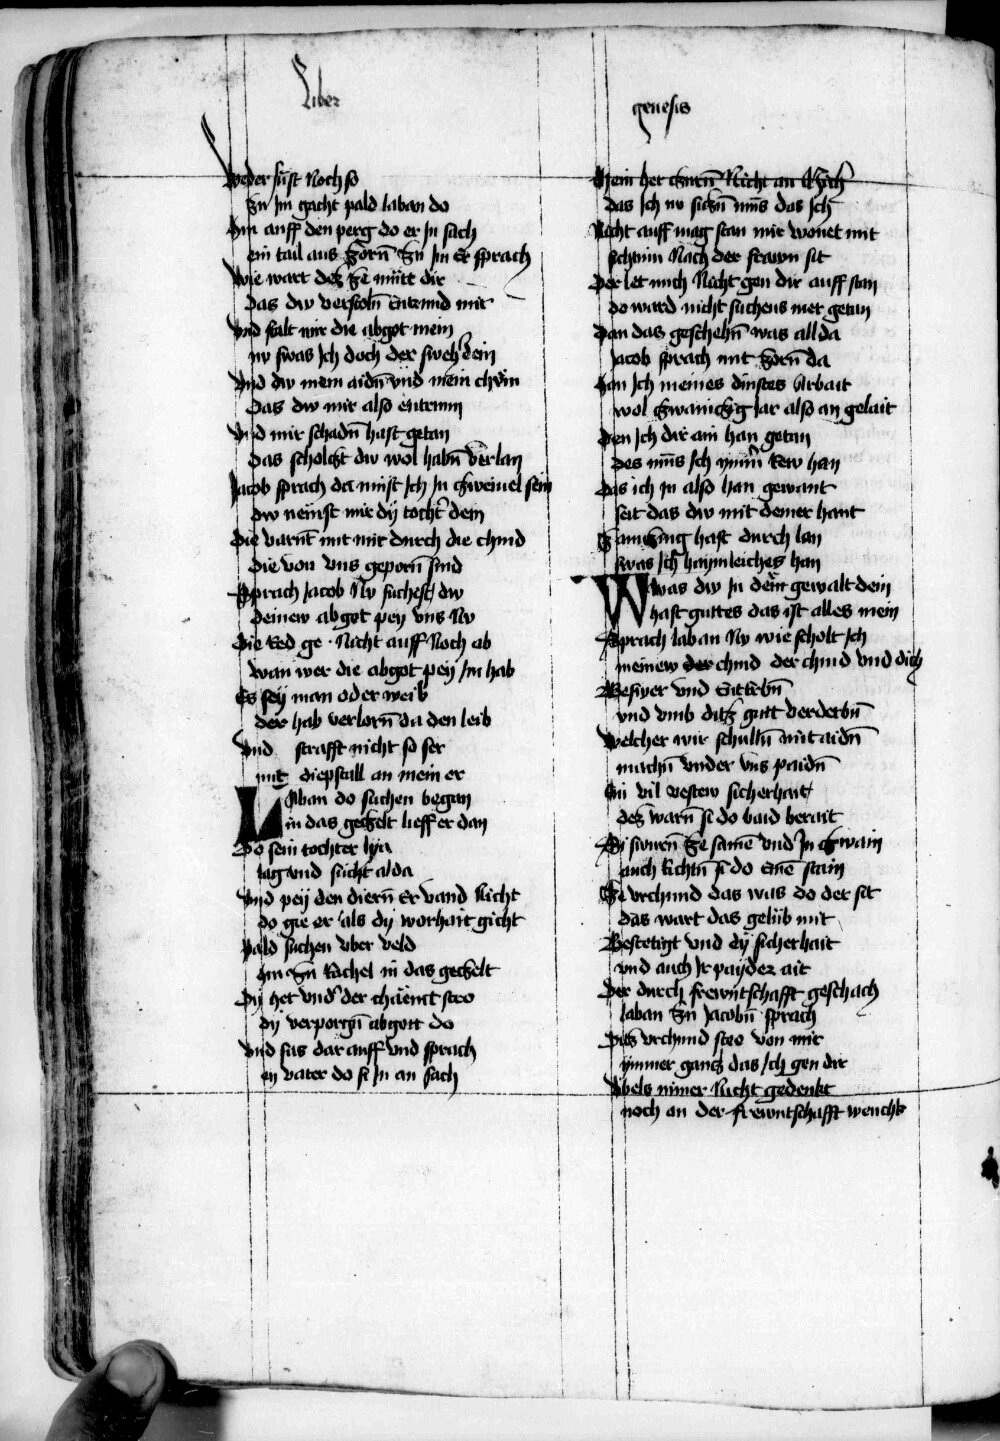 Liber
genesis
Weder sust Noch so
Zu Im gacht pald laban do
Hin auff den perg do er In sach
ein tail aus zorn̄ Zu Im Er sprach
Wie wart dez ze mütt dir
das dw verstoln̄ Entrind mir
Vnd stalt mir die abgot mein
nv swas Ich doch der sweher dein
Vnd dw mein aidn̄ vnd mein chän
Das dw mir also entrinn
Vnd mir schadn̄ hast getan
das scholczt dw wol habn̄ verlan
Jacob sprach da müst Ich In zweiuel sein
dw nemst mir dy tocht̄ dein
die varnt̄ mit mir durch die chind
die von vns geporn̄ sind
Sprach Jacob Nv suchest dw
deinew abgot pey vns Nv
die Red ge Nicht auff Noch ab
wan wer die abgot pey Im hab
Es sey man oder weib
der hab verlorn̄ da den leib
Vnd strafft nicht so ser
mit diepstall an mein er
Laban do suchen began
in das geczelt lieff er dan
Do sein tochter lya
lag vnd sucht alda
Vnd pey den diern̄ Er vand Nicht
do gie er als dy worhait gicht
Pald suchen vber veld
hin Zu Rachel in das geczelt
Dy het vnder der chäemt stro
dy verporgn̄ abgott do
Vnd sas dar auff vnd sprach
ey vater do si In an sach
Mein her czurn̄ Nicht an mich
das Ich nv siczn̄ mus das Ich
Nicht auff mag stan mir wonet mit
schein Nach der frawn sit
Der let mich Nicht gen dir auff stan
do ward nicht suchens mer getan
Dan das geschehn̄ was all da
Jacob sprach mit zorn̄ da
Han Ich meines dinstes Arbait
wol zwainczig Jar also an gelait
Den Ich dir ain han getan
des mus Ich ymm̄ Rew han
Das ich in also han gewant
seit das dw mit deiner hant
Samung hast durch lan
swas Ich haymleiches han
Was dw In dem gewalt dein
hast guttes das ist alles mein
Sprach laban Nv wie scholt Ich
meinew der chind der chind vnd dich
Beswer vnd Enterbn̄
vnd vmb ditz gutt verderbn̄
Welcher wir schulln̄ mit aidn̄
machn̄ vnder vns paidn̄
Ein vil vestew sicherhait
dez warn̄ si do baid berait
Si swurn̄ ze samē vnd In zwain
auch Richtn̄ si do einē stain
Ze vrchund das was do der sit
das wart das gelüb mit
Bestetigt vnd dy sicherhait
vnd auch Ir payder ait
Der durch frewntschafft geschach
laban Zu Jacobn̄ sprach
Ditz vrchund stee von mir
ymmer gancz das Ich gen dir
Vbels nimer Nicht gedenkt
noch an der frewntschafft wenchk